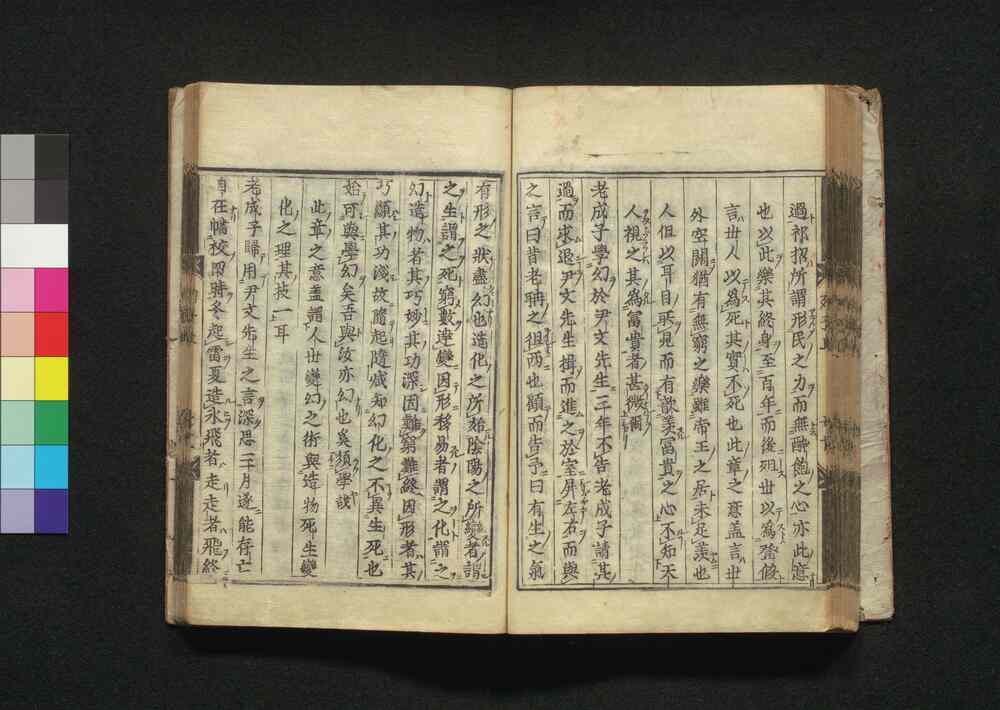 過祁招所謂形民之力而無醉飽之心亦此意
也以此樂其終身至百年而後殂世以爲登假
言世人以為死其實不死也此章之意蓋言世
外空闊猶有無窮之樂雖帝王之居未足羨也
人但以耳目所見而有歆羨富貴之心不知天
人視之其為富貴者甚微爾
老成子學幻於尹文先生三年不告老成子請其
過而求退尹文先生揖而進之於室屏左右而與
之言曰昔老聃之徂西也顧而告予曰有生之氣
有形之狀盡幻也造化之所始陰陽之所變者謂
之生謂之死窮數達變因形移易者謂之化謂之
幻造物者其巧妙其功深固難窮難終因形者其
巧顯其功淺故隨起隨滅知幻化之不異生死也
始可與學幻矣吾與汝亦幻也奚須學哉
此章之意盖謂人世變幻之術與造物死生變
化之理其技一耳
老成子歸用尹文先生之言深思三月遂能存亡
自在憣校四時冬起雷夏造氷飛者走走者飛終